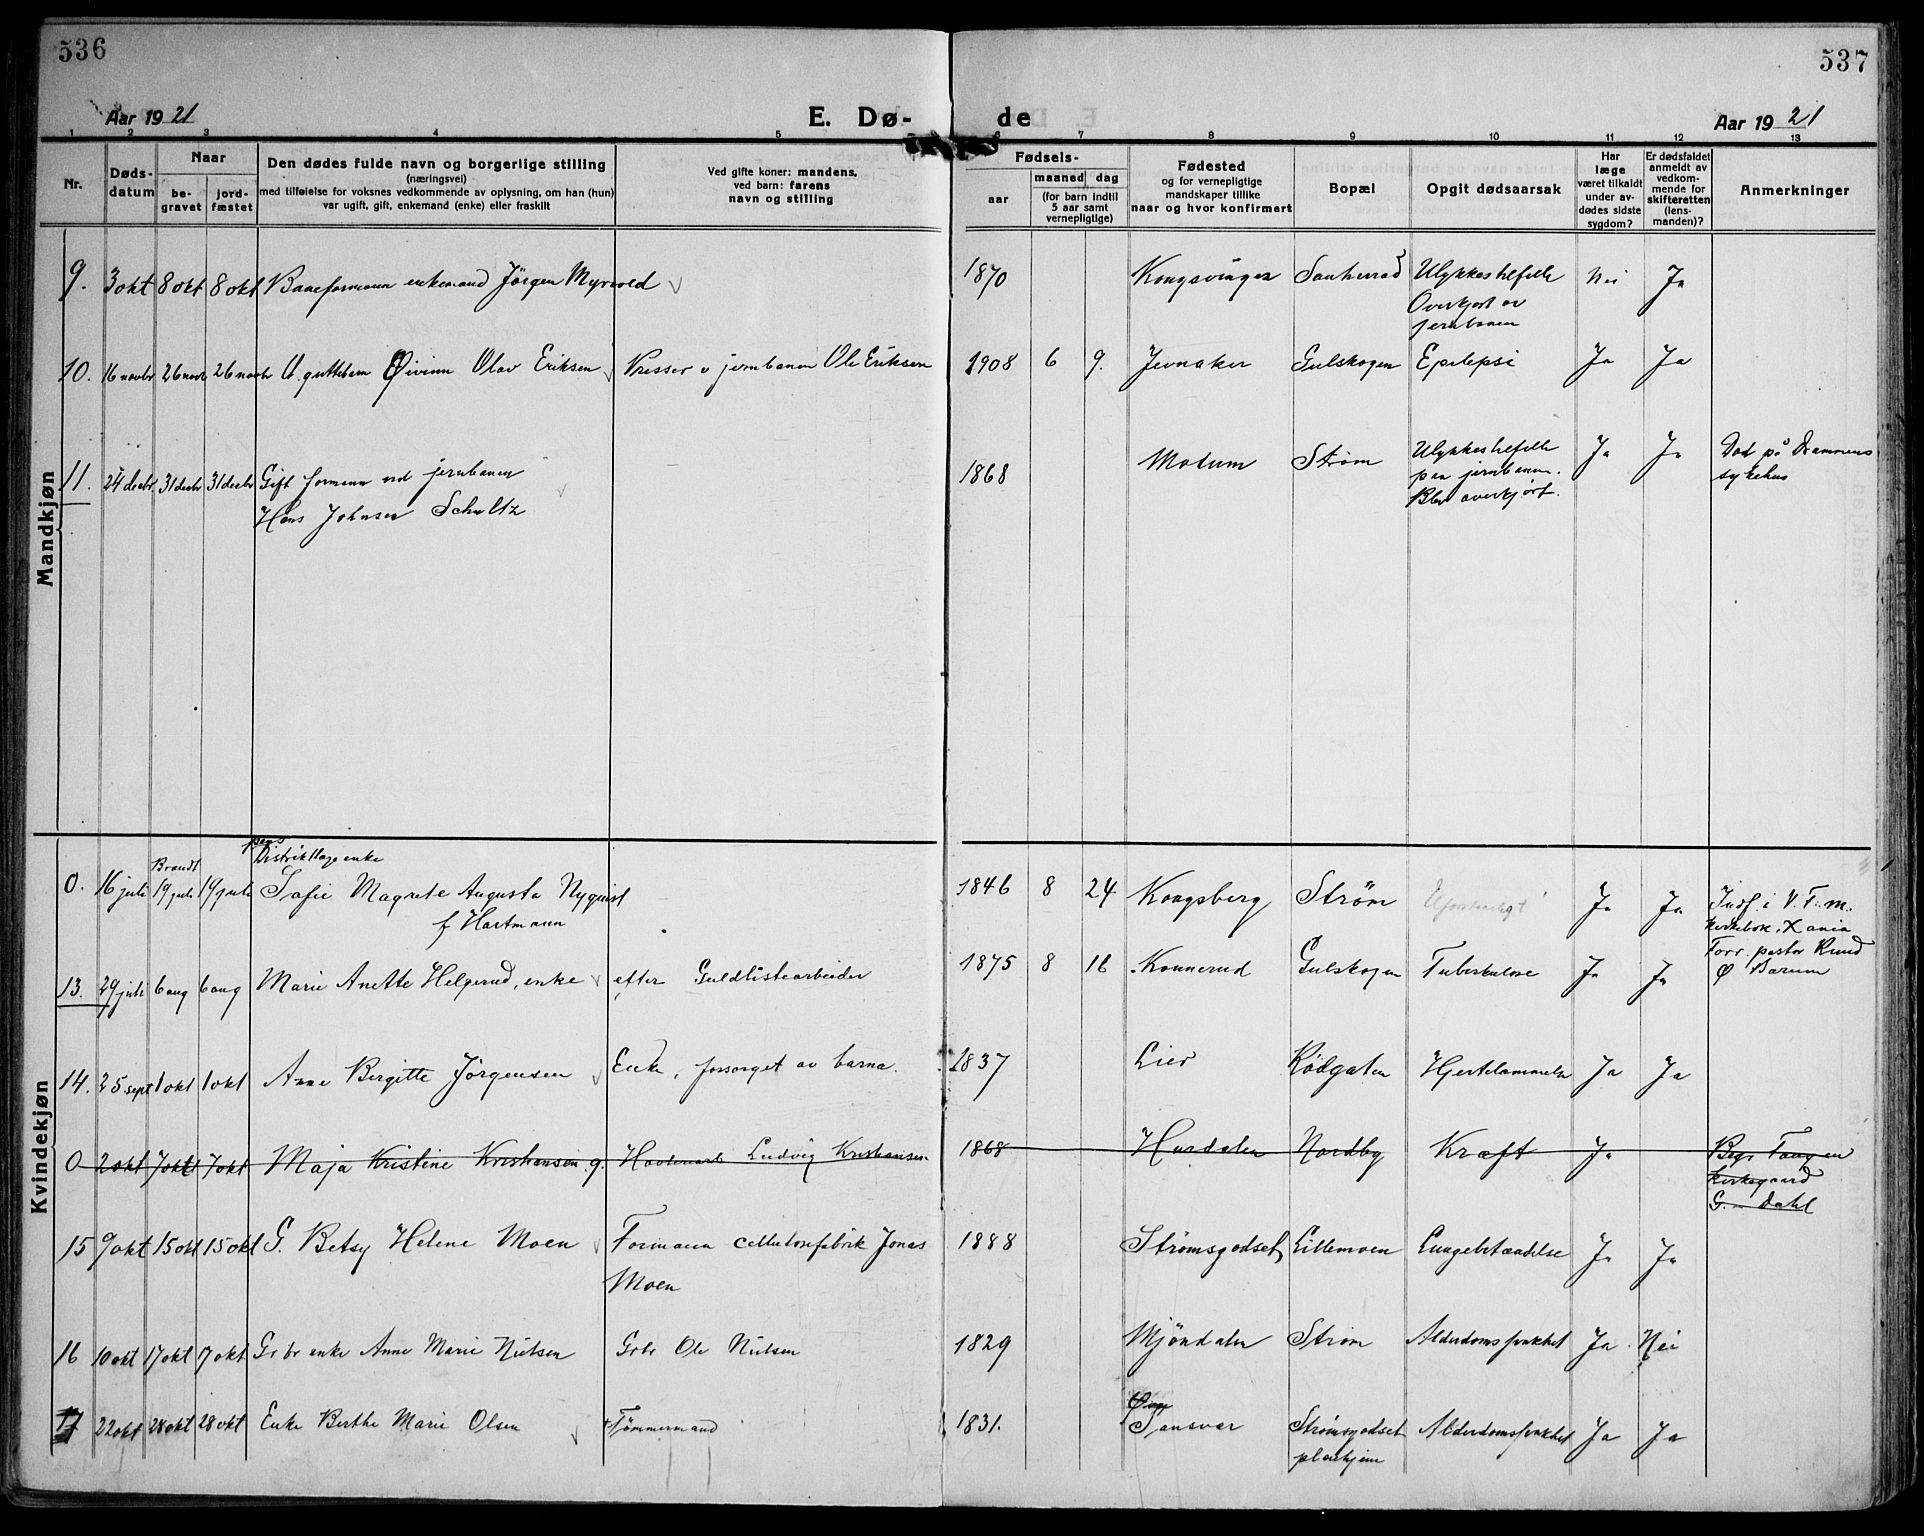 536
537
Aar 1921
E. Dø-
de
Aar 1921
1 2 3 4 5 6 7 8 9 10 11 12 13
Nr.
Døds-
datum
Naar
be-
gravet
jord-
fæstet
Den dødes fulde navn og borgerlige stilling
(næringsvei)
med tilføielse for voksnes vedkommende av oplysning, om han (hun)
var ugift, gift, enkemand (enke) eller fraskilt
Ved gifte koner: mandens,
ved barn: farens
navn og stilling
Fødsels-
aar
maaned dag
(for barn indtil
5 aar samt
vernepligtige)
Fødested
og for vernepligtige
mandskaper tillike
naar og hvor konfirmert
Bopæl
Opgit dødsaarsak
Har
læge
været tilkaldt
under av-
dødes sidste
sygdom?
Er dødsfaldet
anmeldt av
vedkom-
mende for
skifteretten
(lens-
manden)?
Anmerkninger
Mandkjøn
9. 3 okt 8 okt 8 okt Baneformann enkemand Jörgen Myrvold 1870 Kongsvinger Sauherrad Ulykkestilfelle Nei Ja
Overkjørt av
jernbanen
10. 16 novbr 26 novbr 26 novbr U. guttebarn Øivinn Olav Eriksen Presser v jernbanen Ole Eriksen 1908 6 9. Jevnaker Gulskogen Epilepsi Ja Ja
11. 24 decbr 31 decbr 31 decbr Gift formann ved jernbanen 1868 Modum Strøm Ulykkestilfelle Ja Ja Död på Drammens
Hans Johnsen Schultz paa jernbanen. sykehus
Blev overkjört.
Kvindekjøn
pens
Distriktlæge enke
Brandt
0. 16 juli 19 juli 19 juli Sofie Magrete Augusta Nyquist 1846 8 24 Kongsberg Strøm Uforstaaeligt Ja Ja Indf. i V. F. m.
f Hartmann kirkebok, X ania
Forr. pastor Ruud
13. 29 juli 6 aug 6 aug Marie Anette Helgerud, enke efter Guldlistearbeider 1875 8 16 Konnerud Gulskogen Tuberkulose Ja Ja Ø Bærum
14. 25 sept 1 okt 1 okt Anne Bergitte Jörgensen Enke, forsorget av barna. 1837 Lier Rödgaten Hjertelammelse Ja Ja
0 2 okt 7 okt 7 okt Maja Kristine Kristiansen. g. Ludvig Kristiansen 1868 Hurdalen Nordby Kræft Ja Begr Tangen
kirkegaard
G. Dahl
15 9 okt 15 okt 15 okt G. Betsy Helene Moen Formann cellulosefabrik Jonas 1888 Strømsgodset Lillemoen Lungebetændelse Ja Ja
Moen
16 10 okt 17 okt 17 okt Grbr enke Anne Marie Nielsen Grbr Ole Nielsen 1829 Mjöndalen Strøm Alderdomssvakhet Ja Nei
17 22 okt 28 okt 28 okt Enke Berthe Marie Olsen Tømmermand 1831. Sansvær Strömsgodset Alderdomssvakhet Ja Ja
pleiehjem